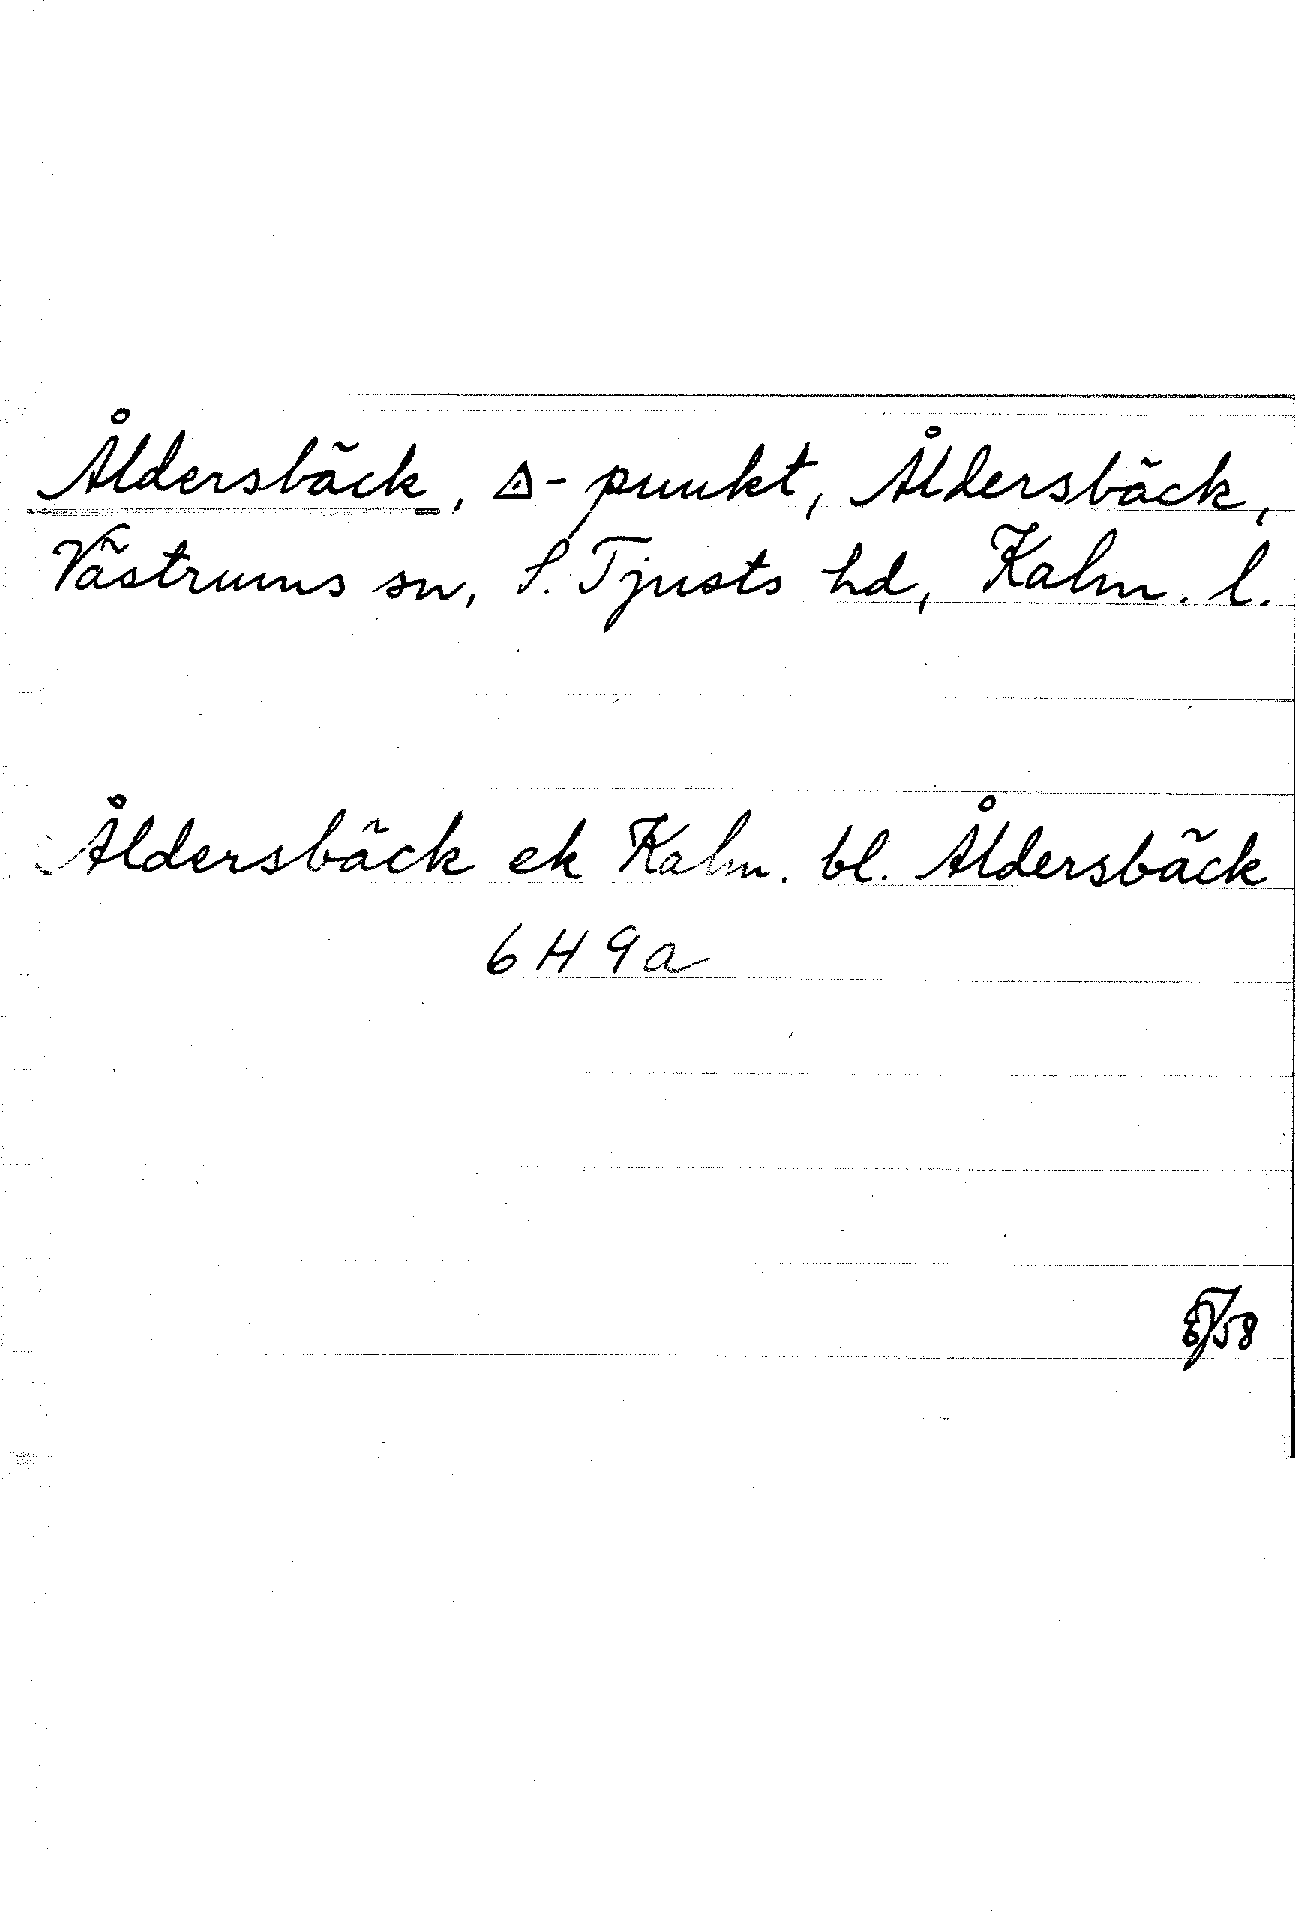 Åldersbäck, △-punkt, Åldersbäck,
Västrums sn, S. Tjusts hd, Kalm. l.
Åldersbäck ek Kalm. bl. Åldersbäck
6 H 9 a
/58